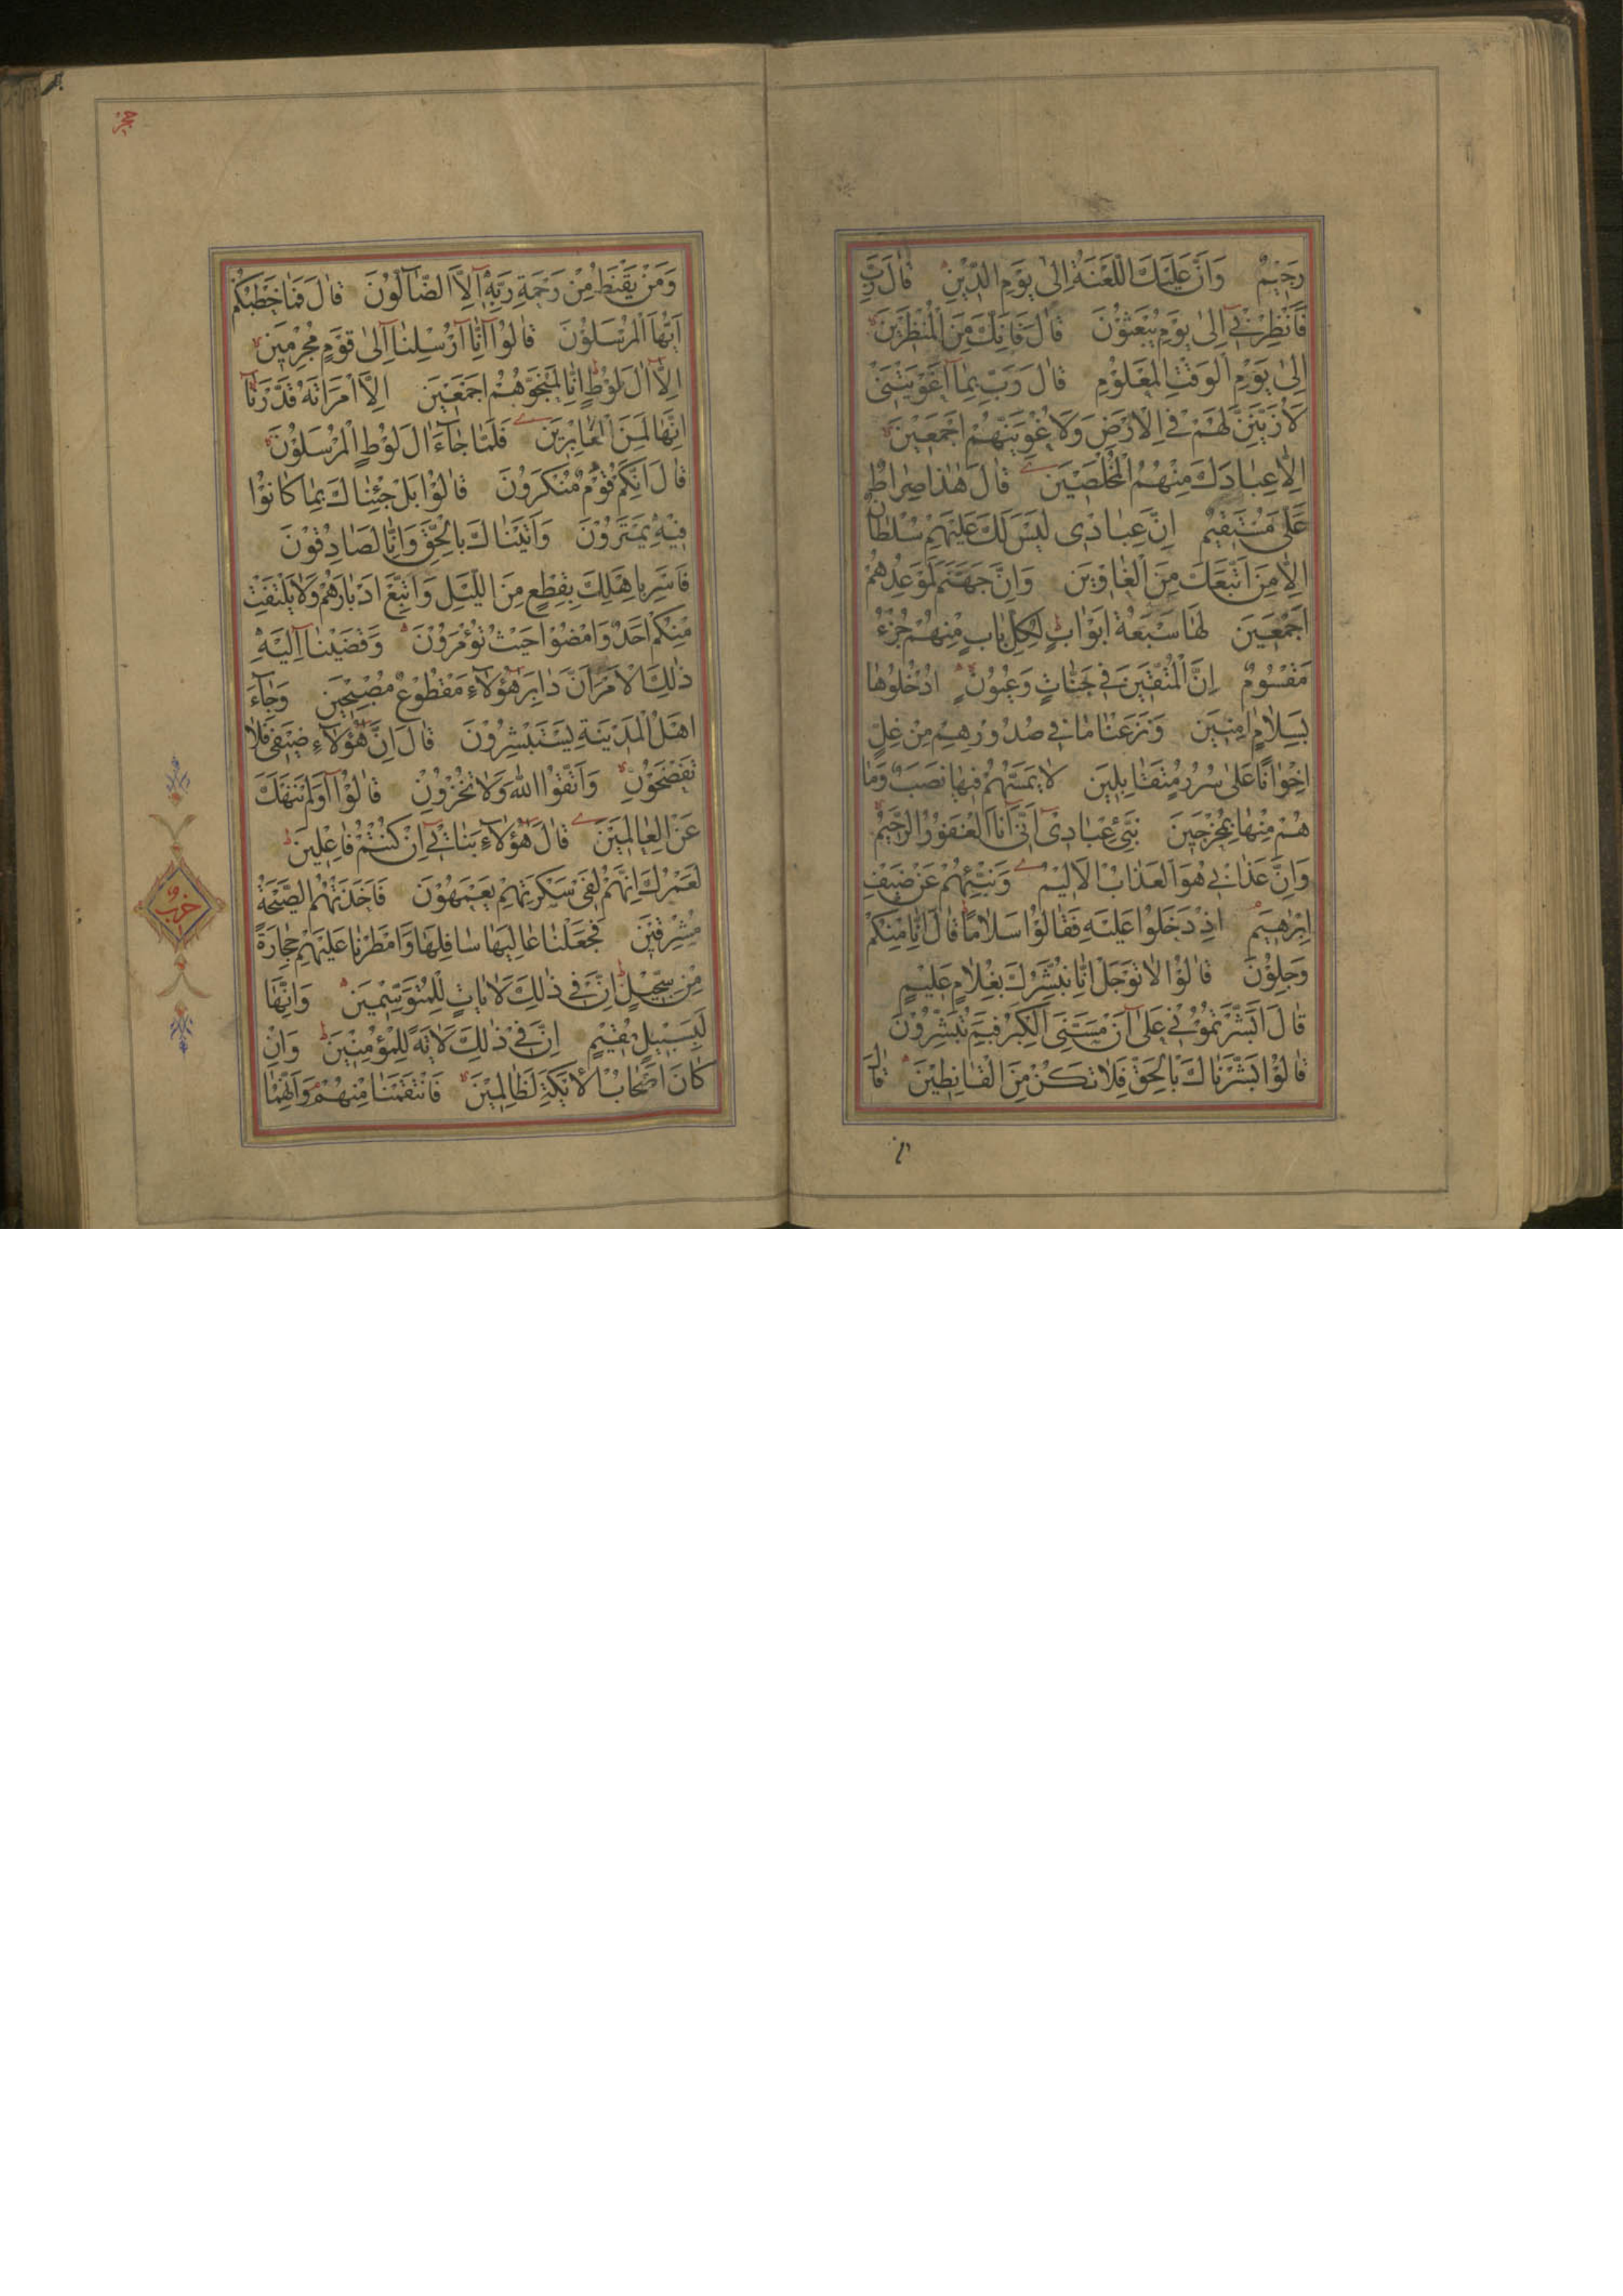 رَجِيمٌ وَاَنَّ عَلَيْكَ اللَّعْنَةَ اِلٰى يَوْمِ الدِّينِ قَالَ رَبِّ
فَاَنْظِرْنِي اِلٰى يَوْمِ يُبْعَثُوْنَ قَالَ فَاِنَّكَ مِنَ الْمُنْظَرِينَ
اِلٰى يَوْمِ الْوَقْتِ الْمَعْلُوْمِ قَالَ رَبِّ بِمَا اَغْوَيْتَنِي
لَاُزَيِّنَنَّ لَهُمْ فِي الْاَرْضِ وَلَاُغْوِيَنَّهُمْ اَجْمَعِينَ
اِلَّا عِبَادَكَ مِنْهُمُ الْمُخْلَصِينَ قَالَ هٰذَا صِرَاطٌ
عَلَيَّ مُسْتَقِيمٌ اِنَّ عِبَادِى لَيْسَ لَكَ عَلَيْهِمْ سُلْطَانٌ
اِلَّا مَنِ اتَّبَعَكَ مِنَ الْغَاوِينَ وَاِنَّ جَهَنَّمَ لَمَوْعِدُهُمْ
اَجْمَعِينَ لَهَا سَبْعَةُ اَبْوَابٍ لِكُلِّ بَابٍ مِنْهُمْ جُزْءٌ
مَقْسُوْمٌ اِنَّ الْمُتَّقِينَ فِي جَنَّاتٍ وَعُيُوْنٍ ادْخُلُوهَا
بِسَلَامٍ اٰمِنِينَ وَنَزَعْنَا مَا فِي صُدُوْرِهِمْ مِنْ غِلٍّ
اِخْوَانًا عَلٰى سُرُرٍ مُتَقَابِلِينَ لَا يَمَسُّهُمْ فِيهَا نَصَبٌ وَمَا
هُمْ مِنْهَا بِمُخْرَجِينَ نَبِّئْ عِبَادِى اَنِّي اَنَا الْغَفُوْرُ الرَّحِيمُ
وَاَنَّ عَذَابِي هُوَ الْعَذَابُ الْاَلِيمُ وَنَبِّئْهُمْ عَنْ ضَيْفِ
اِبْرٰهِيمَ اِذْ دَخَلُوا عَلَيْهِ فَقَالُوْا سَلَامًا قَالَ اِنَّا مِنْكُمْ
وَجِلُوْنَ قَالُوْا لَا تَوْجَلْ اِنَّا نُبَشِّرُكَ بِغُلَامٍ عَلِيمٍ
قَالَ اَبَشَّرْتُمُوْنِي عَلٰى اَنْ مَسَّنِيَ الْكِبَرُ فَبِمَ تُبَشِّرُوْنَ
قَالُوْا بَشَّرْنَاكَ بِالْحَقِّ فَلَا تَكُنْ مِنَ الْقَانِطِينَ قَالَ
حجر
وَمَنْ يَقْنَطُ مِنْ رَحْمَةِ رَبِّهِ اِلَّا الضَّالُّوْنَ قَالَ فَمَا خَطْبُكُمْ
اَيُّهَا الْمُرْسَلُوْنَ قَالُوْا اِنَّا اُرْسِلْنَا اِلٰى قَوْمٍ مُجْرِمِينَ
اِلَّا اٰلَ لُوْطٍ اِنَّا لَمُنَجُّوهُمْ اَجْمَعِينَ اِلَّا امْرَاَتَهُ قَدَّرْنَا
اِنَّهَا لَمِنَ الْغَابِرِينَ فَلَمَّا جَاءَ اٰلَ لُوْطٍ الْمُرْسَلُوْنَ
قَالَ اِنَّكُمْ قَوْمٌ مُنْكَرُوْنَ قَالُوْا بَلْ جِئْنَاكَ بِمَا كَانُوْا
فِيهِ يَمْتَرُوْنَ وَاَتَيْنَاكَ بِالْحَقِّ وَاِنَّا لَصَادِقُوْنَ
فَاَسْرِ بِاَهْلِكَ بِقِطْعٍ مِنَ اللَّيْلِ وَاتَّبِعْ اَدْبَارَهُمْ وَلَا يَلْتَفِتْ
مِنْكُمْ اَحَدٌ وَامْضُوْا حَيْثُ تُؤْمَرُوْنَ وَقَضَيْنَا اِلَيْهِ
ذٰلِكَ الْاَمْرَ اَنَّ دَابِرَ هٰؤُلَاءِ مَقْطُوْعٌ مُصْبِحِينَ وَجَاءَ
اَهْلُ الْمَدِينَةِ يَسْتَبْشِرُوْنَ قَالَ اِنَّ هٰؤُلَاءِ ضَيْفِي فَلَا
تَفْضَحُوْنِ وَاتَّقُوْا اللّٰهَ وَلَا تُخْزُوْنِ قَالُوْا اَوَلَمْ نَنْهَكَ
عَنِ الْعَالَمِينَ قَالَ هٰؤُلَاءِ بَنَاتِي اِنْ كُنْتُمْ فَاعِلِينَ
لَعَمْرُكَ اِنَّهُمْ لَفِي سَكْرَتِهِمْ يَعْمَهُوْنَ فَاَخَذَتْهُمُ الصَّيْحَةُ
مُشْرِقِينَ فَجَعَلْنَا عَالِيَهَا سَافِلَهَا وَاَمْطَرْنَا عَلَيْهِمْ حِجَارَةً
مِنْ سِجِّيلٍ اِنَّ فِي ذٰلِكَ لَاٰيَاتٍ لِلْمُتَوَسِّمِينَ وَاِنَّهَا
لَبِسَبِيلٍ مُقِيمٍ اِنَّ فِي ذٰلِكَ لَاٰيَةً لِلْمُؤْمِنِينَ وَاِنْ
كَانَ اَصْحَابُ الْاَيْكَةِ لَظَالِمِينَ فَانْتَقَمْنَا مِنْهُمْ وَاِنَّهُمَا
حزب